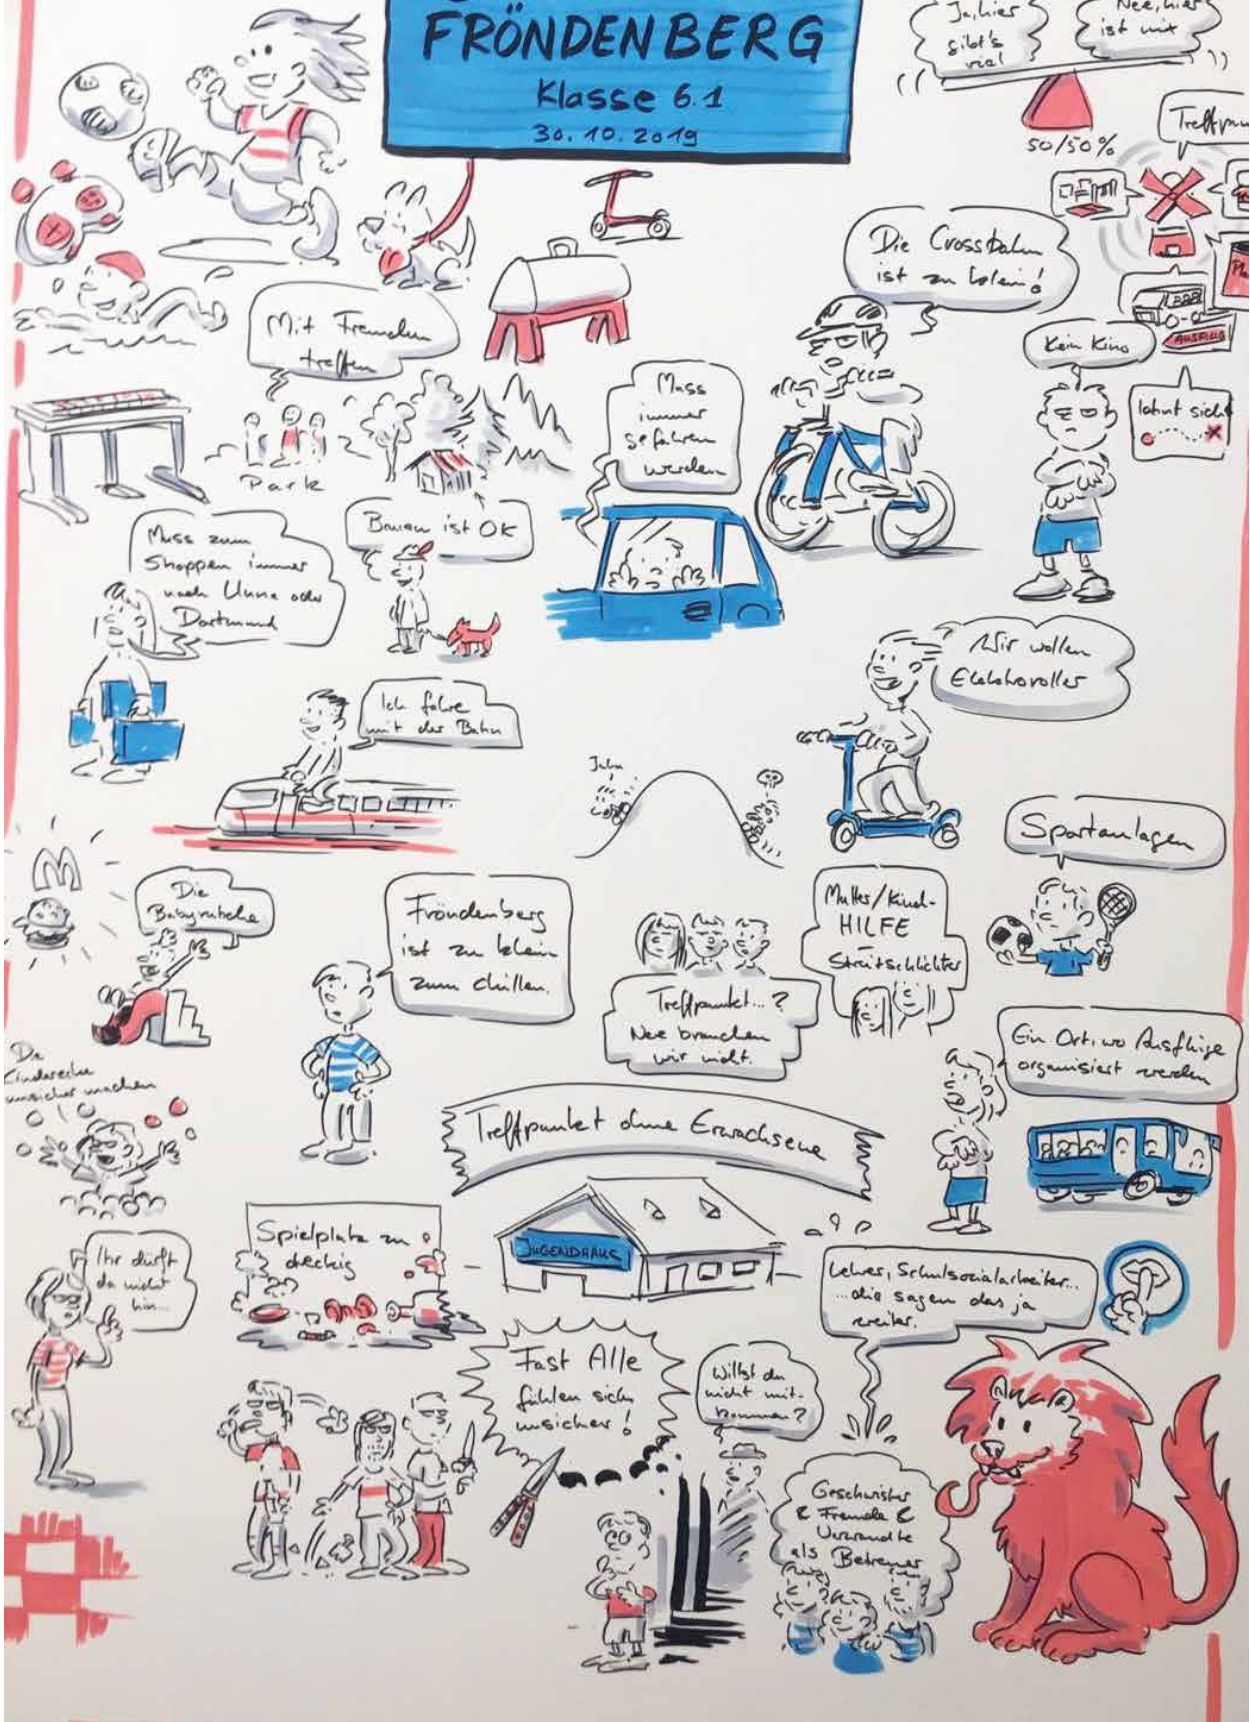 FRÖNDENBERG
Klasse 6.1
30.10.2019
Ja, hier
gibt's
viel
Nee, hier
ist nix
50/50%
Treffpun
Die Crossbahn
ist zu klein!
Mit Freunden
treffen
Park
Muss
immer
gefahren
werden
Kein Kino
AUSFLUG
lohnt sich
Bauen ist OK
Muss zum
Shoppen immer
nach Unna oder
Dortmund
Wir wollen
Elektoroller
Ich fahre
mit der Bahn
Sportanlagen
M
Die
Babyrutsche
Fröndenberg
ist zu klein
zum chillen.
Mutter/Kind-
HILFE
Streitschlichter
Treffpunkt...?
Nee brauchen
wir nicht.
Ein Ort, wo Ausflüge
organisiert werden
Die
Kinderecke
unsicher machen
Treffpunkt ohne Erwachsene
JUGENDHAUS
Spielplatz zu
dreckig
Ihr dürft
da nicht
hin...
Lehrer, Schulsozialarbeiter...
...die sagen das ja
weiter.
Fast Alle
fühlen sich
unsicher!
Willst du
nicht mit-
kommen?
Geschwister
& Freunde &
Verwandte
als Betreuer